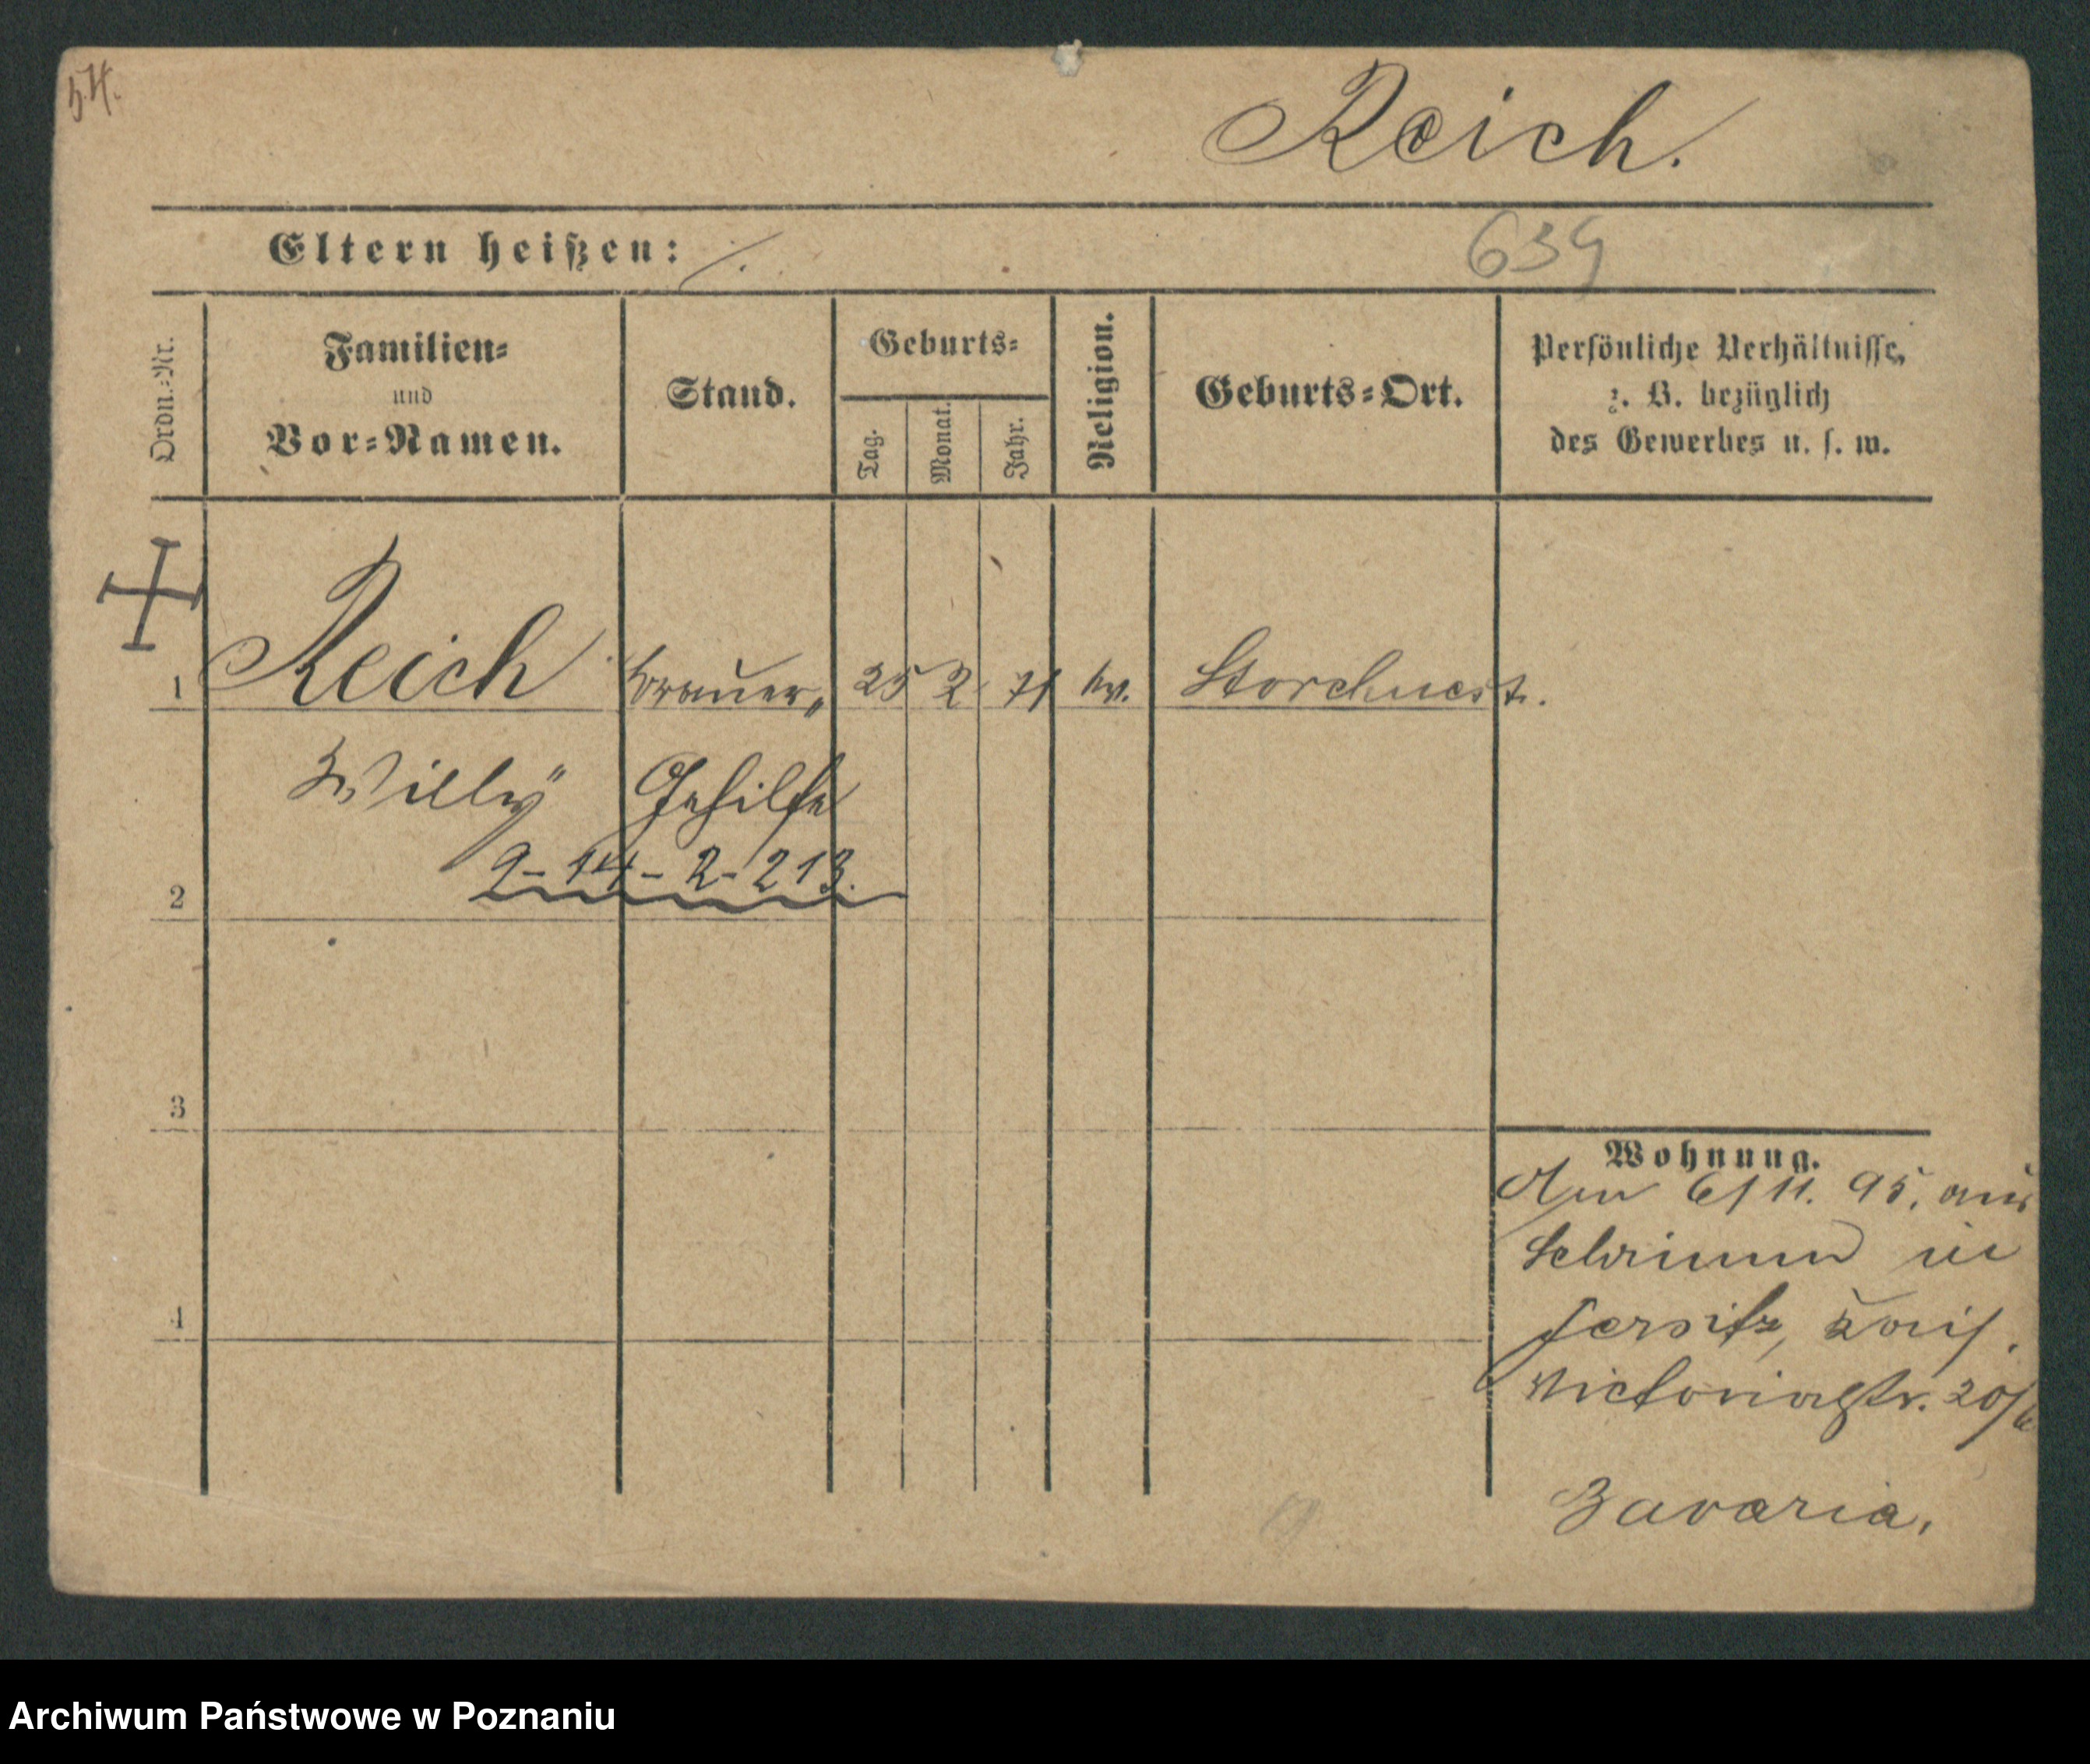 Reich.
Eltern heißen: ./.
639
Ordn.-Nr.
Familien-
und
Vor-Namen.
Stand.
Geburts-
Tag.
Monat.
Jahr.
Religion.
Geburts-Ort.
Persönliche Verhältnisse,
z. B. bezüglich
des Gewerbes u. s. w.
1 Reich brauer„ 25 2 71 Storchnest.
Willy Gehilfe
9-14-2-213.
2
3
4
Wohnung.
Am 6/11. 95. aus
Schrimm in
Jersitz, Kais.
Victoriastr. 20/
Bavaria.
Archiwum Państwowe w Poznaniu